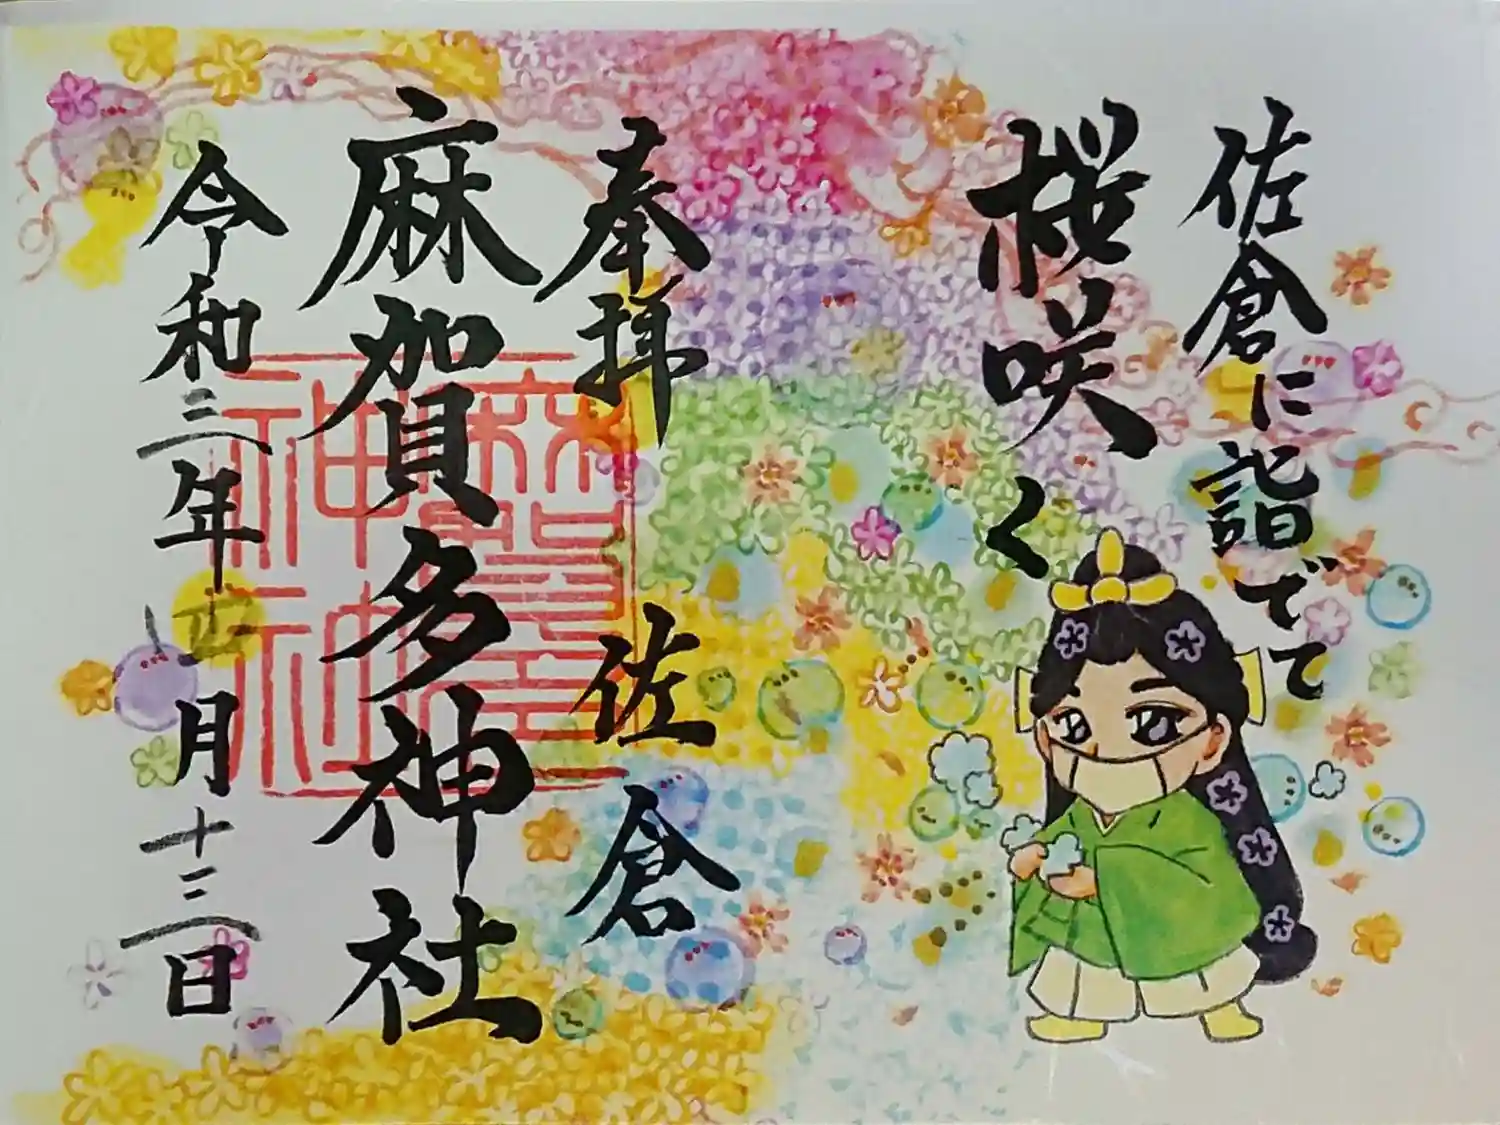 佐倉に詣でて
桜咲く
奉拝 佐倉
麻賀多神社
令和三年正月十三日
麻賀多神社